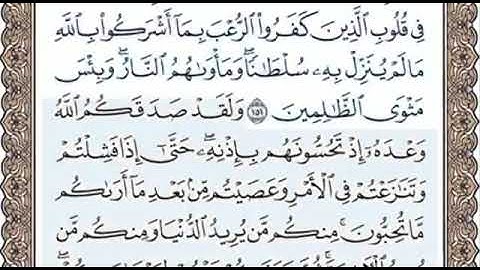 فِى قُلُوبِ ٱلَّذِينَ كَفَرُوا۟ ٱلرُّعْبَ بِمَآ أَشْرَكُوا۟ بِٱللَّهِ
مَا لَمْ يُنَزِّلْ بِهِۦ سُلْطَـٰنًا ۖ وَمَأْوَىٰهُمُ ٱلنَّارُ ۚ وَبِئْسَ
مَثْوَى ٱلظَّـٰلِمِينَ ١٥١ وَلَقَدْ صَدَقَكُمُ ٱللَّهُ
وَعْدَهُۥٓ إِذْ تَحُسُّونَهُم بِإِذْنِهِۦ ۖ حَتَّىٰٓ إِذَا فَشِلْتُمْ
وَتَنَـٰزَعْتُمْ فِى ٱلْأَمْرِ وَعَصَيْتُم مِّنۢ بَعْدِ مَآ أَرَىٰكُم
مَّا تُحِبُّونَ ۚ مِنكُم مَّن يُرِيدُ ٱلدُّنْيَا وَمِنكُم مَّن